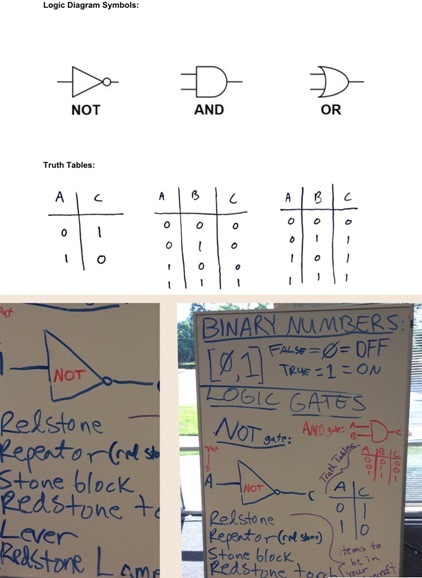 Logic Diagram Symbols:
NOT AND OR
Truth Tables:
A C A B C A B C
0 1 0 0 0 0 0 0
1 0 0 1 0 0 1 1
1 0 0 1 0 1
1 1 1 1 1 1
NOT
Redstone
Repeator (red sto
Stone block
Redstone to
Lever
Redstone Lamp
BINARY NUMBERS:
[Ø,1] FALSE = Ø = OFF
TRUE = 1 = ON
LOGIC GATES
NOT gate: AND gate: A B C
A NOT C
Truth Tables
A B C
A C
0 1
1 0
Redstone
Repeator (red stone)
Stone block
Redstone torch
items to
be in
your